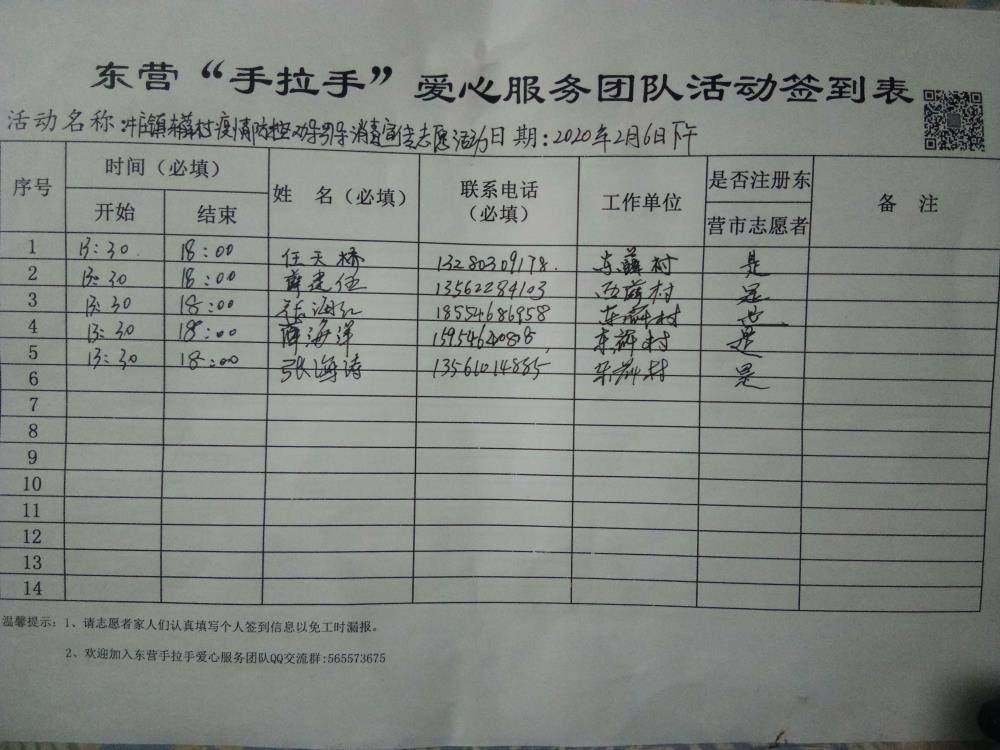 东营“手拉手”爱心服务团队活动签到表
活动名称：牛庄镇东薛村疫情防控劝导引导消毒宣传志愿活动 日期：2020年2月6日下午
序号 时间（必填） 姓 名（必填） 联系电话（必填） 工作单位 是否注册东营市志愿者 备 注
开始 结束
1 13:30 18:00 任天桥 13280309178. 东薛村 是
2 13:30 18:00 薛建伍 13562284103 西薛村 是
3 13:30 18:00 张海红 18554686958 东薛村 是
4 13:30 18:00 薛海洋 东薛村 是
5 13:30 18:00 张海涛 13561014885 东薛村 是
6
7
8
9
10
11
12
13
14
温馨提示：1、请志愿者家人们认真填写个人签到信息以免工时漏报。
2、欢迎加入东营手拉手爱心服务团队QQ交流群:565573675